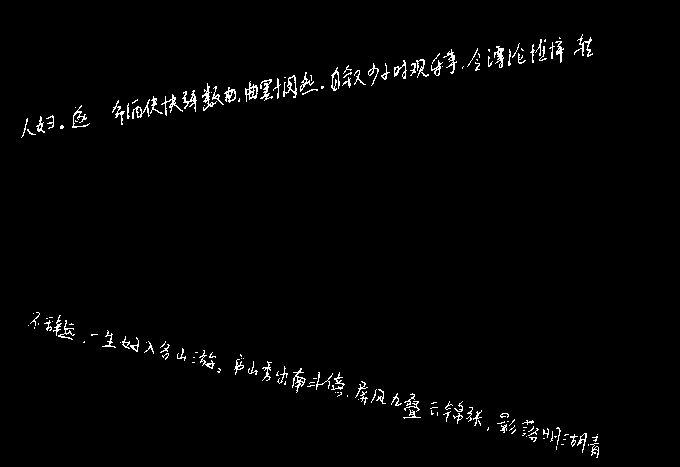 人妇。遂 命酒使快弹数曲,曲罢悯然。自叙少小时欢乐事,今漂沦憔悴 转
不辞远,一生好入名山游。庐山秀出南斗傍,屏风九叠云锦张,影落明湖青